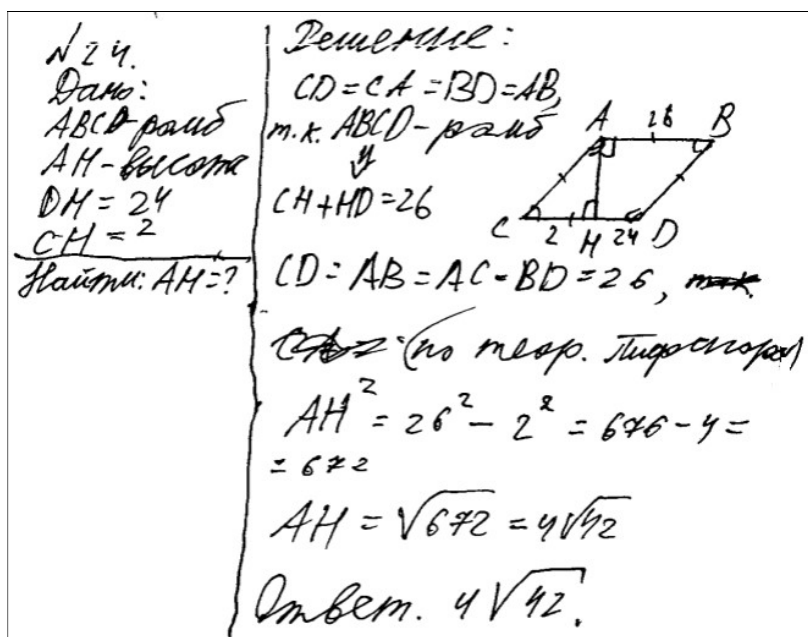 N 24.
Дано:
ABCD-ромб
AH-высота
DH = 24
CH = 2
Найти: AH=?
Решение:
CD = CA = BD = AB,
т.к. ABCD-ромб
⇓
CH + HD = 26
A 26 B
C 2 H 24 D
CD = AB = AC = BD = 26,
(по теор. Пифагора)
AH² = 26² - 2² = 676 - 4 =
= 672
AH = √672 = 4√42
Ответ. 4√42.